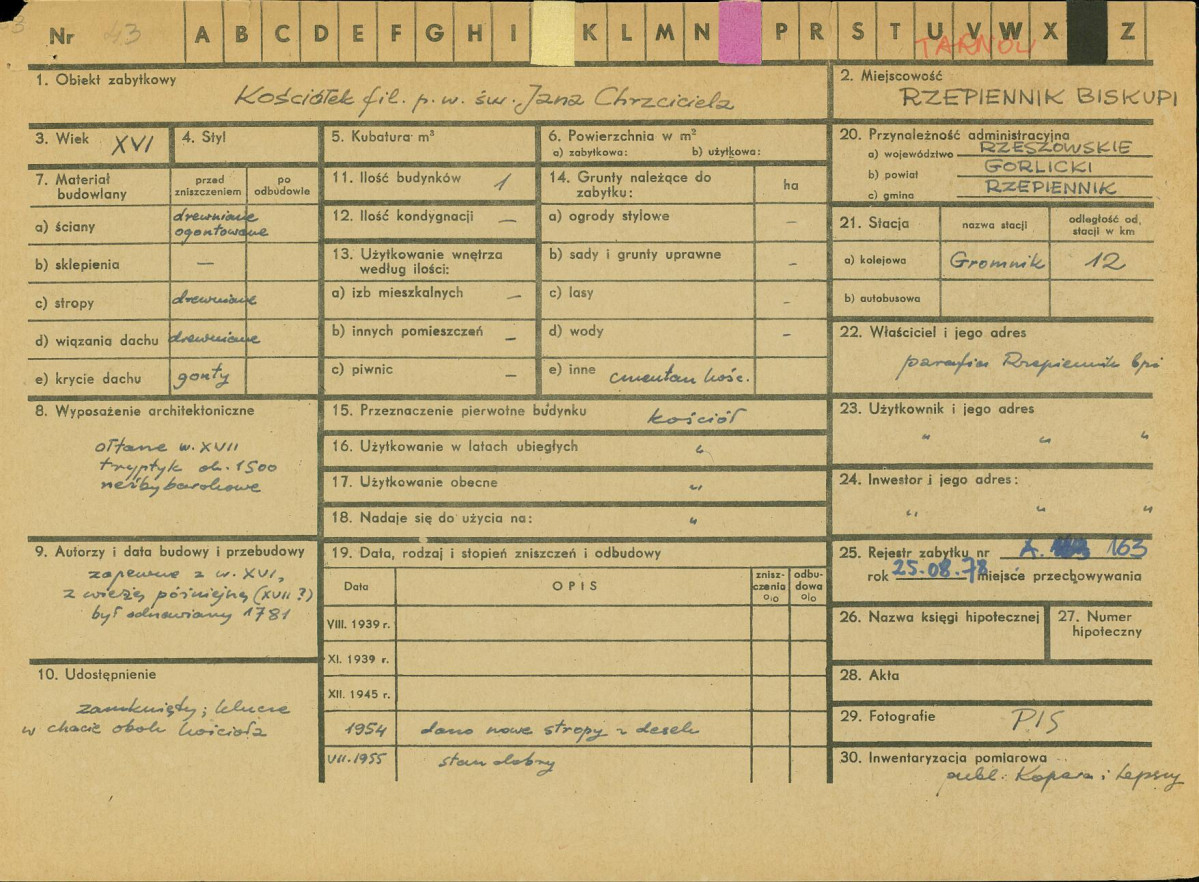 Nr 43 A B C D E F G H I K L M N P R S T U V W X Z
TARNÓW
1. Obiekt zabytkowy
Kościółek fil. p. w. św. Jana Chrzciciela
2. Miejscowość
RZEPIENNIK BISKUPI
3. Wiek XVI
4. Styl
5. Kubatura m³
6. Powierzchnia w m²
a) zabytkowa: b) użytkowa:
7. Materiał budowlany
przed zniszczeniem
po odbudowie
a) ściany drewniane ogontowane
b) sklepienia —
c) stropy drewniane
d) wiązania dachu drewniane
e) krycie dachu gonty
8. Wyposażenie architektoniczne
ołtarze w. XVII
tryptyk ok. 1500
rzeźby barokowe
9. Autorzy i data budowy i przebudowy
zapewne z w. XVI,
z wieżą późniejszą (XVII ?)
był odnawiany 1781
10. Udostępnienie
zamknięty; klucze
w chacie obok kościoła
11. Ilość budynków 1
12. Ilość kondygnacji —
13. Użytkowanie wnętrza
według ilości:
a) izb mieszkalnych —
b) innych pomieszczeń —
c) piwnic —
14. Grunty należące do
zabytku: ha
a) ogrody stylowe –
b) sady i grunty uprawne –
c) lasy –
d) wody –
e) inne cmentarz kośc.
15. Przeznaczenie pierwotne budynku kościół
16. Użytkowanie w latach ubiegłych "
17. Użytkowanie obecne "
18. Nadaje się do użycia na: "
19. Data, rodzaj i stopień zniszczeń i odbudowy
Data OPIS znisz-czenia % odbu-dowa %
VIII. 1939 r.
XI. 1939 r.
XII. 1945 r.
1954 dano nowe stropy z desek
VII. 1955 stan dobry
20. Przynależność administracyjna
a) województwo RZESZOWSKIE
b) powiat GORLICKI
c) gmina RZEPIENNIK
21. Stacja nazwa stacji odległość od. stacji w km
a) kolejowa Gromnik 12
b) autobusowa
22. Właściciel i jego adres
parafia Rzepiennik bpi
23. Użytkownik i jego adres
" " "
24. Inwestor i jego adres:
" " "
25. Rejestr zabytku nr A. 163
rok 25.08.78 miejsce przechowywania
26. Nazwa księgi hipotecznej
27. Numer hipoteczny
28. Akta
29. Fotografie PIS
30. Inwentaryzacja pomiarowa
publ. Kopera i Lepszy